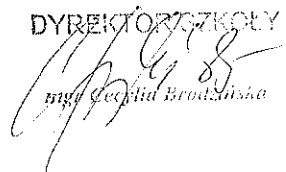 DYREKTOR SZKOŁY
mgr Cecylia Brodzińska